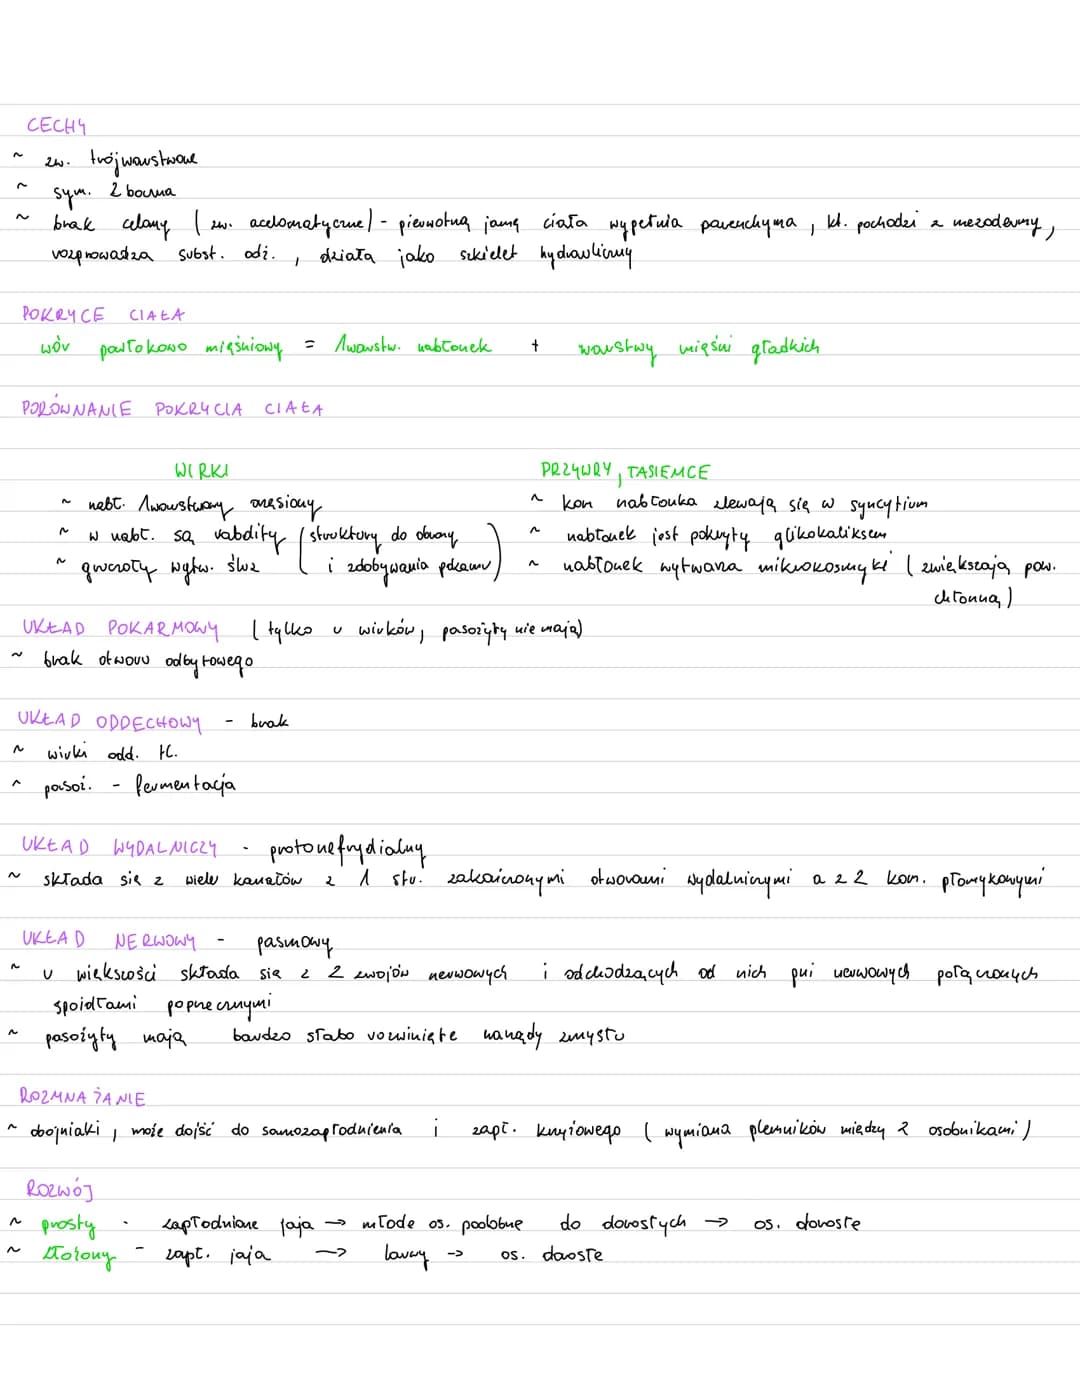 CECHY
~ zw. trójwarstwowe
~ sym. 2 boczna
~ brak celomy (zw. acelomatyczne) - pierwotną jamę ciała wypełnia parenchyma, kt. pochodzi z mezodermy,
rozprowadza subst. odż., działa jako szkielet hydrauliczny
POKRYCE CIAŁA
wór powłokowo mięśniowy = 1warstw. nabłonek + warstwy mięśni gładkich
PORÓWNANIE POKRYCIA CIAŁA
WIRKI
~ nabł. 1warstwowy orzęsiony
~ w nabł. są rabdity (struktury do obrony
i zdobywania pokarmu)
~ gruczoły wytw. śluz
PRZYWRY, TASIEMCE
~ kom nabłonka zlewają się w syncytium
~ nabłonek jest pokryty glikokaliksem
~ nabłonek wytwarza mikrokosmyki (zwiększają pow.
chłonną)
UKŁAD POKARMOWY (tylko u wirków, pasożyty nie mają)
~ brak otworu odbytowego
UKŁAD ODDECHOWY - brak
~ wirki odd. tl.
~ pasoż. - fermentacja
UKŁAD WYDALNICZY - protonefrydialny
~ składa się z wielu kanałów z 1 str. zakończonymi otworami wydalniczymi a z 2 kom. płomykowymi
UKŁAD NERWOWY - pasmowy
~ u większości składa się z 2 zwojów nerwowych i odchodzących od nich pni nerwowych połączonych
spoidłami poprzecznymi
~ pasożyty mają bardzo słabo rozwinięte narządy zmysłu
ROZMNAŻANIE
~ obojniaki, może dojść do samozapłodnienia i zapł. krzyżowego (wymiana plemników między 2 osobnikami)
ROZWÓJ
~ prosty - zapłodnione jaja → młode os. podobne do dorosłych → os. dorosłe
~ złożony - zapł. jaja → larwy → os. dorosłe